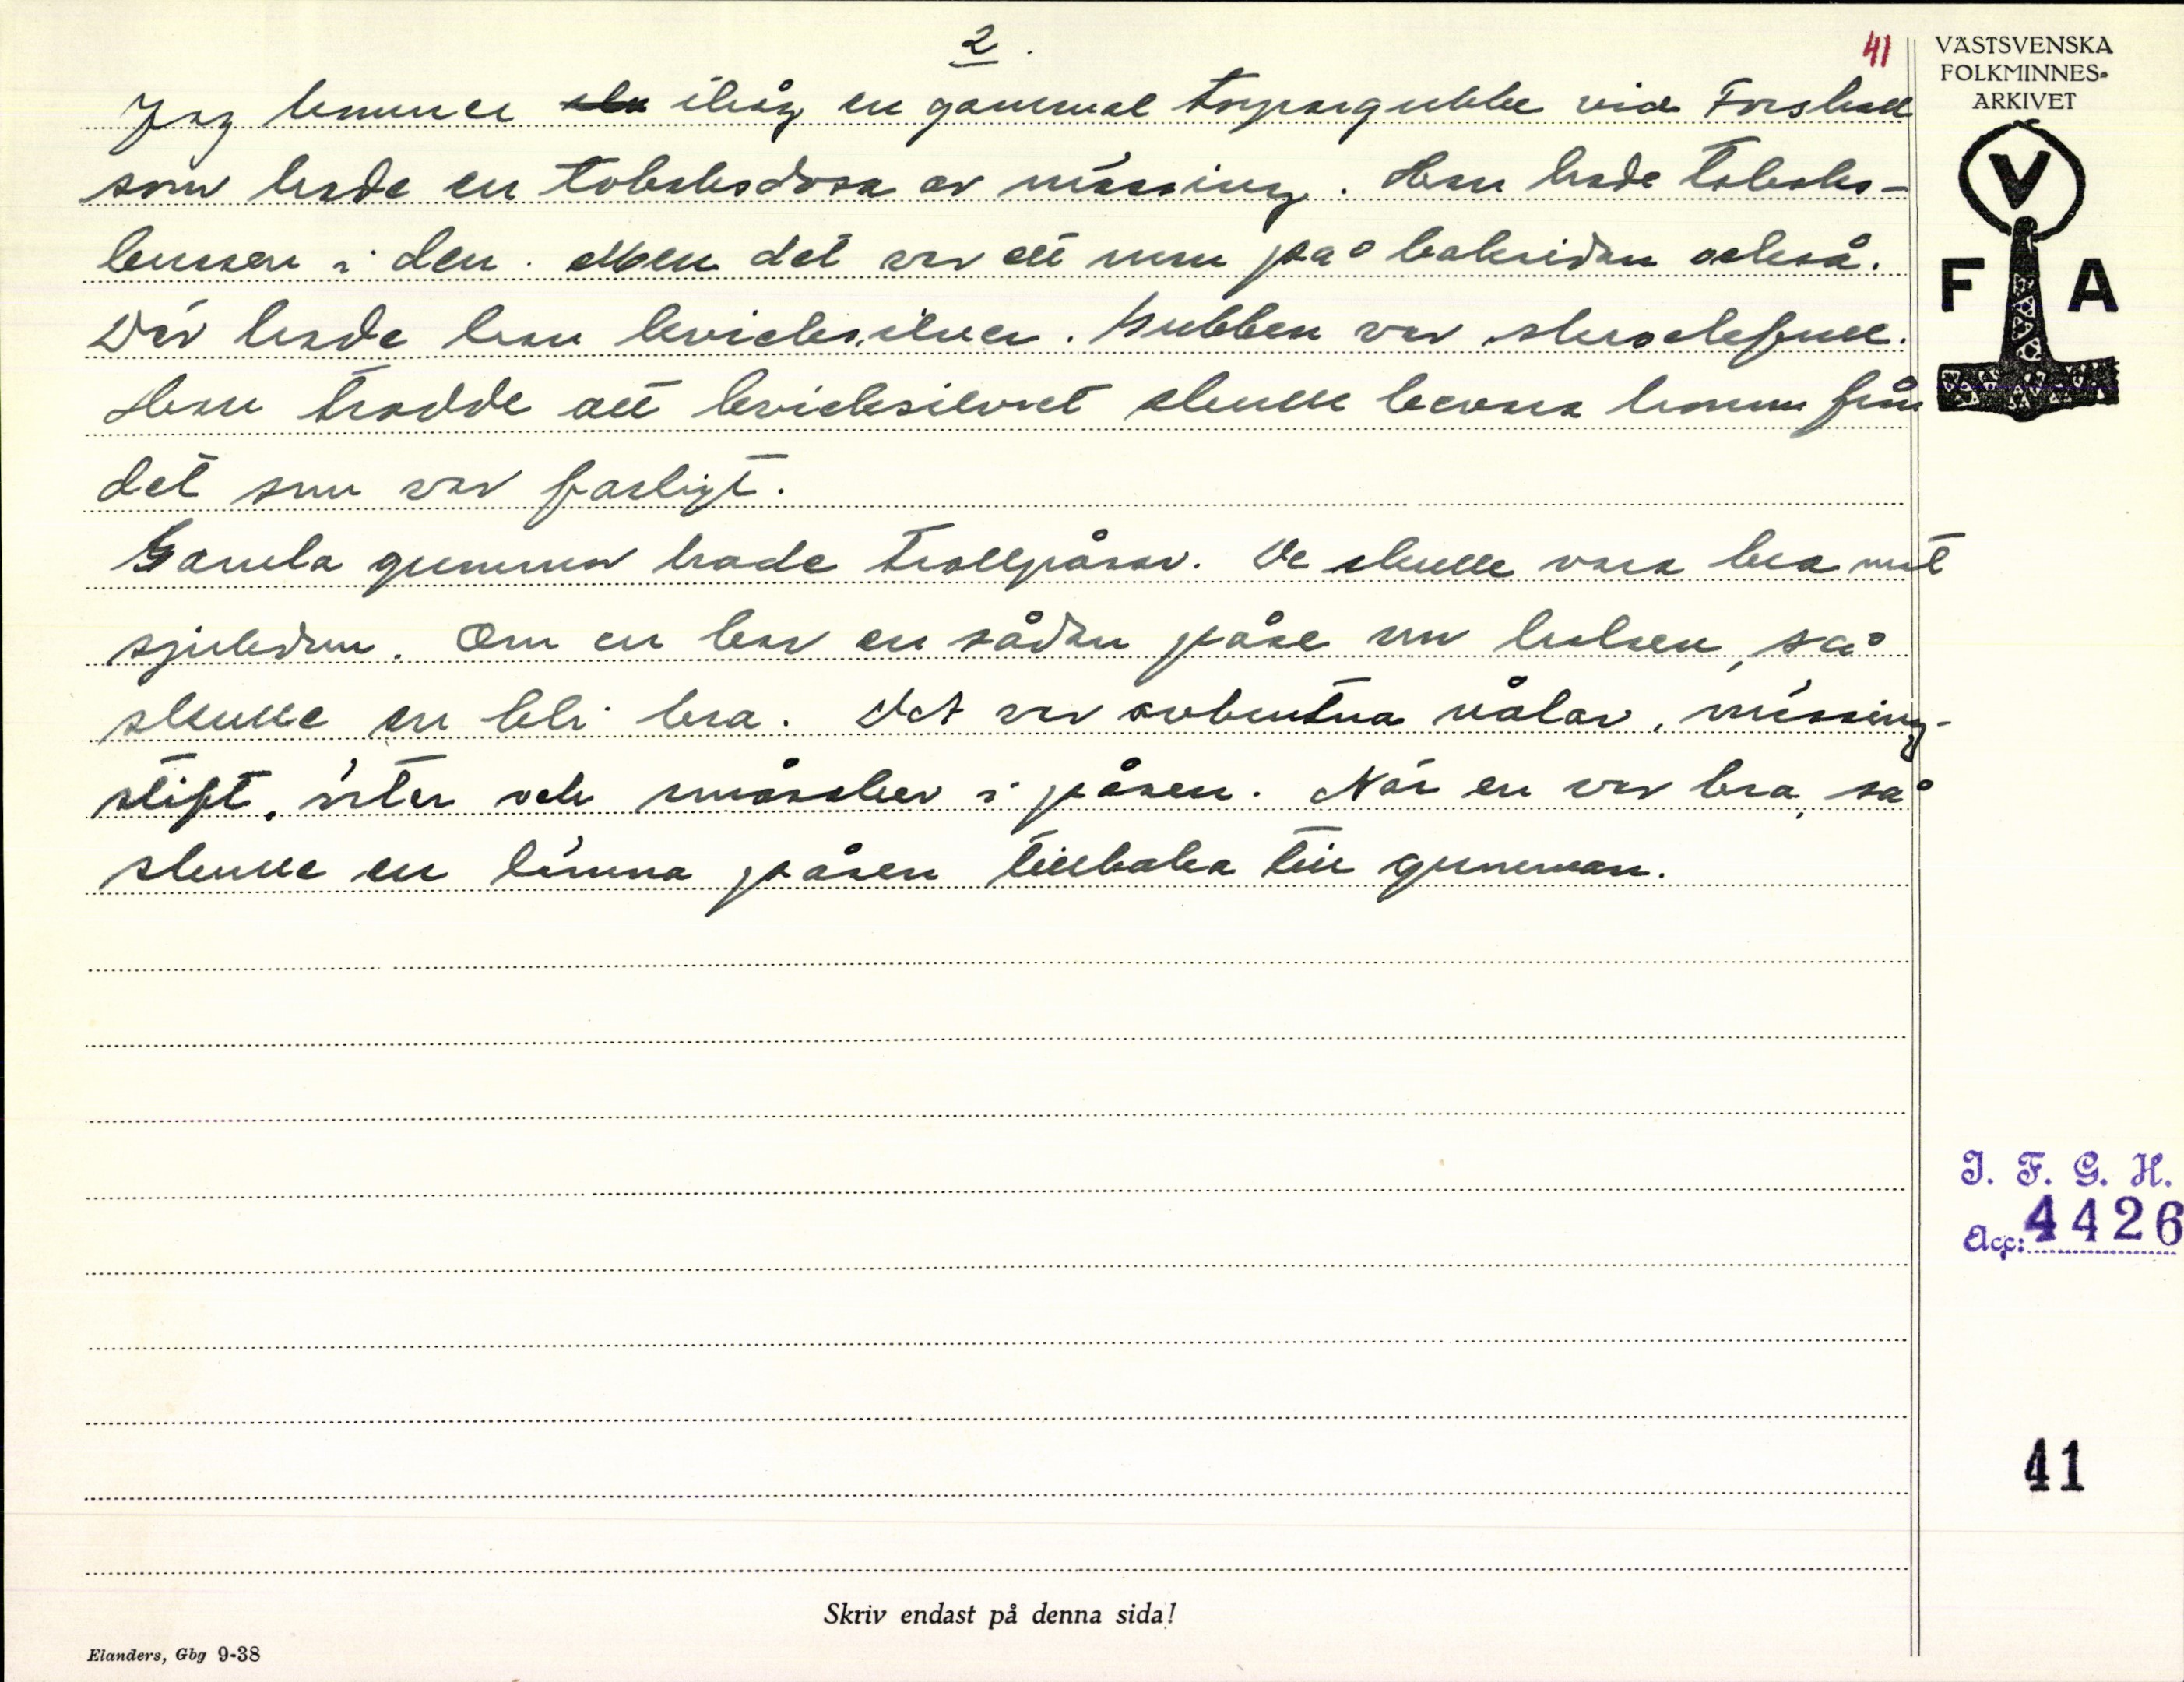 2.
41
VÄSTSVENSKA
FOLKMINNES-
ARKIVET
V
F A
Jag kommer ihåg en gammal torpargubbe vid Forshall
som hade en tobaksdosa av mässing. Han hade tobaks-
bussen i den. Men det var ett rum på baksidan också.
Där hade han kvicksilver. Gubben var skrockfull.
Han trodde att kvicksilvret skulle bevara honom från
det som var farligt.
Gamla gummor hade trollpåsar. De skulle vara bra mot
sjukdom. Om en bar en sådan påse om halsen, så
skulle en bli bra. Det var avbrutna nålar, mässing-
stift, örter och småsaker i påsen. När en var bra, så
skulle en lämna påsen tillbaka till gumman.
I. F. G. H.
Acc: 4426
41
Skriv endast på denna sida!
Elanders, Gbg 9-38